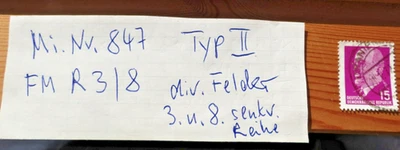 Mi. Nr. 847 Typ II
FM R 3/8
div. Felder
3. u. 8. senkr.
Reihe
DEUTSCHE
DEMOKRATISCHE REPUBLIK
15